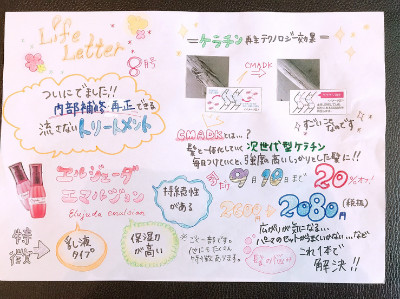 Life
Letter
8月号
ついにでました!!
内部補修・再正できる
流さないトリートメント
エルジューダ
エマルジョン
Elujuda emulsion
特徴
乳液
タイプ
保湿力
が高い
持続性
がある
=ケラチン再生テクノロジー効果=
CMADK
すごい
なのです
CMADKとは…?
髪と一体化していく次世代型ケラチン
毎日つけていくと、強度の高いしっかりとした髪に!!
今だけ 9月10日まで 20%オフ!
2600円→2080円(税抜)
広がりが気になる…
パーマのセットがうまくいかない…など
これ1本で
解決!!